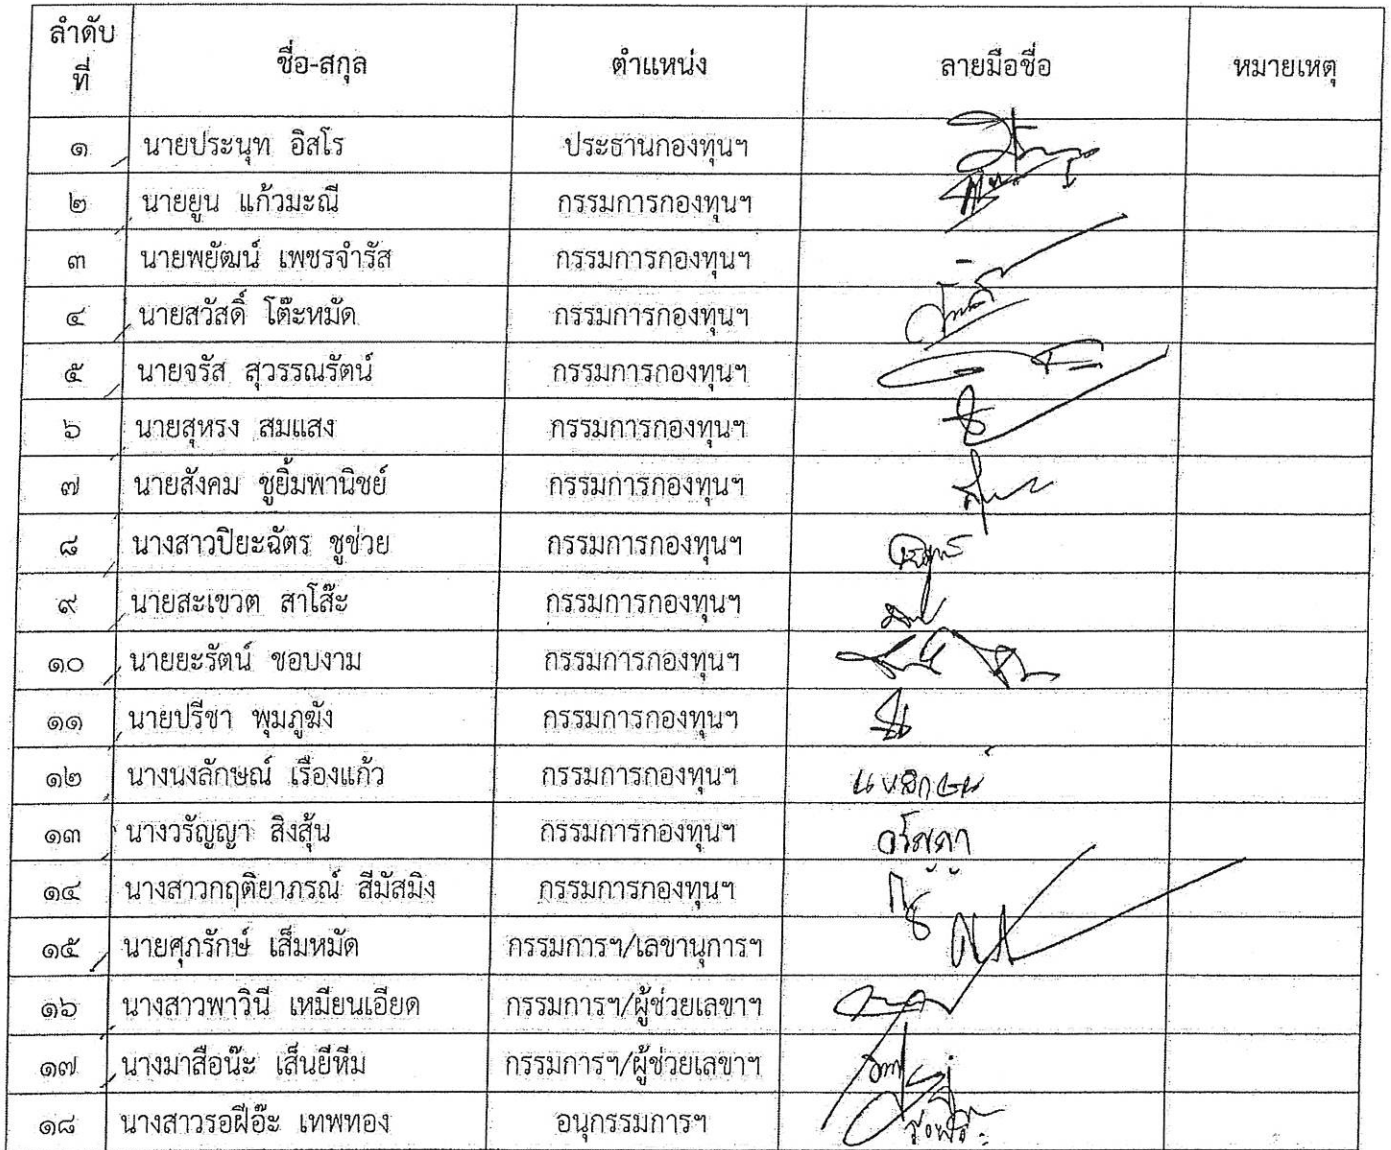 ลำดับ
ที่
ชื่อ-สกุล ตำแหน่ง ลายมือชื่อ หมายเหตุ
๑ นายประนุท อิสโร ประธานกองทุนฯ
๒ นายยูน แก้วมะณี กรรมการกองทุนฯ
๓ นายพยัฒน์ เพชรจำรัส กรรมการกองทุนฯ
๔ นายสวัสดิ์ โต๊ะหมัด กรรมการกองทุนฯ
๕ นายจรัส สุวรรณรัตน์ กรรมการกองทุนฯ
๖ นายสุหรง สมแสง กรรมการกองทุนฯ
๗ นายสังคม ชูยิ้มพานิชย์ กรรมการกองทุนฯ
๘ นางสาวปิยะฉัตร ชูช่วย กรรมการกองทุนฯ
๙ นายสะเขวต สาโส๊ะ กรรมการกองทุนฯ
๑๐ นายยะรัตน์ ชอบงาม กรรมการกองทุนฯ
๑๑ นายปรีชา พุมภูฆัง กรรมการกองทุนฯ
๑๒ นางนงลักษณ์ เรืองแก้ว กรรมการกองทุนฯ นงลักษณ์
๑๓ นางวรัญญา สิงสุ้น กรรมการกองทุนฯ
๑๔ นางสาวกฤติยาภรณ์ สีมัสมิง กรรมการกองทุนฯ
๑๕ นายศุภรักษ์ เส็มหมัด กรรมการฯ/เลขานุการฯ
๑๖ นางสาวพาวินี เหมียนเอียด กรรมการฯ/ผู้ช่วยเลขาฯ
๑๗ นางมาสือน๊ะ เส็นยีหีม กรรมการฯ/ผู้ช่วยเลขาฯ
๑๘ นางสาวรอฝีอ๊ะ เทพทอง อนุกรรมการฯ